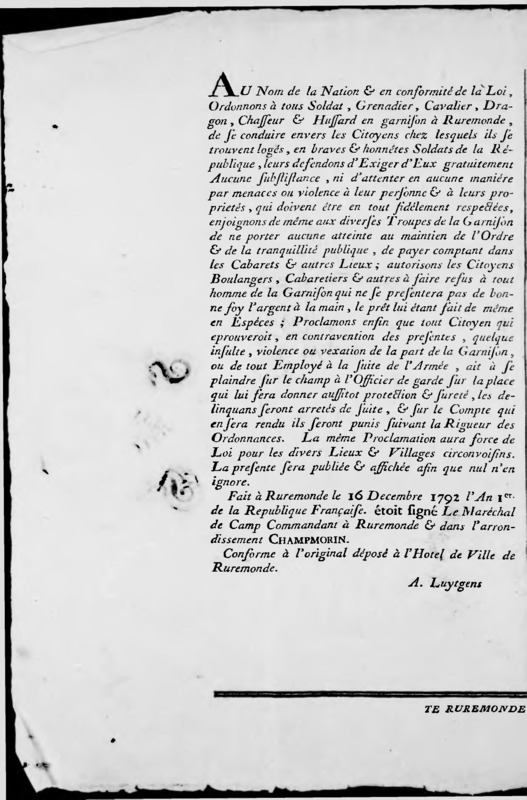 AU Nom de la Nation & en conformité de la Loi,
Ordonnons à tous Soldat, Grenadier, Cavalier, Dra-
gon, Chaſſeur & Huſſard en garniſon à Ruremonde,
de ſe conduire envers les Citoyens chez lesquels ils ſe
trouvent logés, en braves & honnêtes Soldats de la Ré-
publique, leurs defendons d'Exiger d'Eux gratuitement
Aucune ſubſiſtance, ni d'attenter en aucune maniére
par menaces ou violence à leur perſonne & à leurs pro-
prietés, qui doivent être en tout fidélement respectées,
enjoignons de même aux diverſes Troupes de la Garniſon
de ne porter aucune atteinte au maintien de l'Ordre
& de la tranquillité publique, de payer comptant dans
les Cabarets & autres Lieux; autorisons les Citoyens
Boulangers, Cabaretiers & autres à faire refus à tout
homme de la Garniſon qui ne ſe preſentera pas de bon-
ne foy l'argent à la main, le prêt lui étant fait de même
en Espéces; Proclamons enfin que tout Citoyen qui
eprouveroit, en contravention des preſentes, quelque
inſulte, violence ou vexation de la part de la Garniſon,
ou de tout Employé à la ſuite de l'Armée, ait à ſe
plaindre ſur le champ à l'Officier de garde ſur la place
qui lui ſera donner auſſitot protection & ſureté, les de-
linquans ſeront arretés de ſuite, & ſur le Compte qui
en ſera rendu ils ſeront punis ſuivant la Rigueur des
Ordonnances. La même Proclamation aura force de
Loi pour les divers Lieux & Villages circonvoiſins.
La preſente ſera publiée & affichée afin que nul n'en
ignore.
Fait à Ruremonde le 16 Decembre 1792 l'An 1er.
de la Republique Françaiſe. étoit ſigné Le Maréchal
de Camp Commandant à Ruremonde & dans l'arron-
dissement CHAMPMORIN.
Conforme à l'original déposé à l'Hotel de Ville de
Ruremonde.
A. Luytgens
TE RUREMONDE